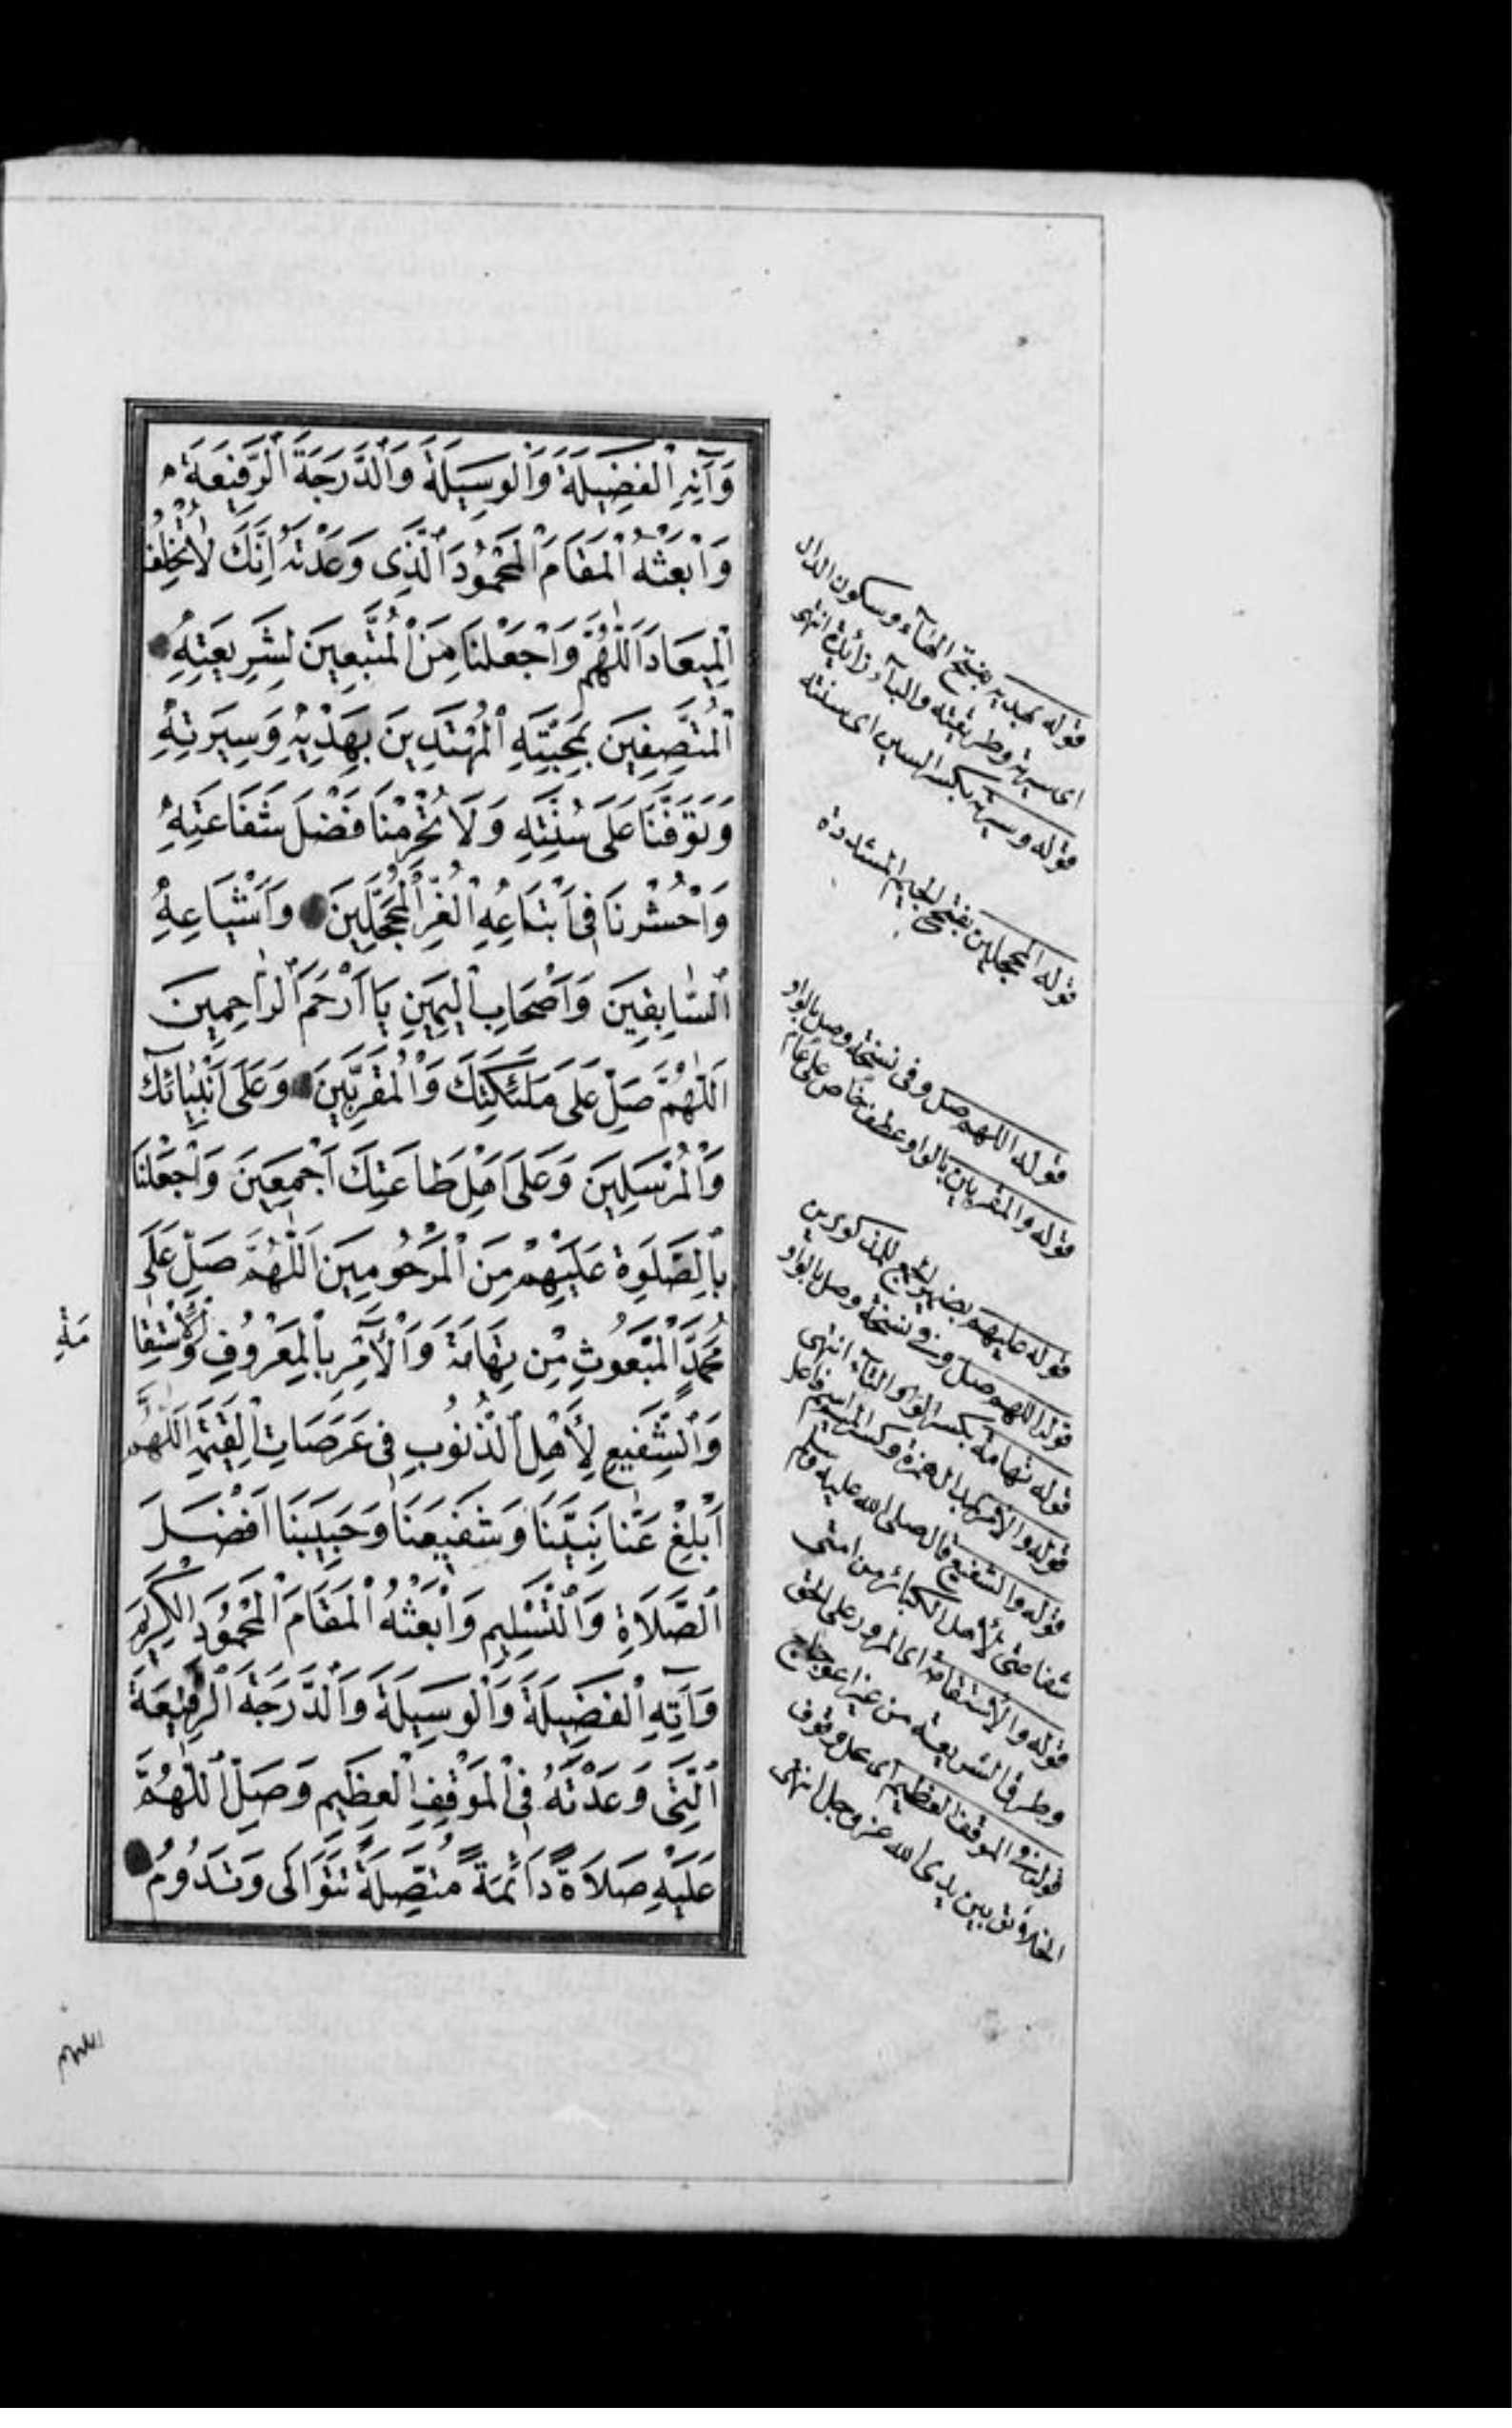 وَآتِهِ ٱلْفَضِيلَةَ وَٱلْوَسِيلَةَ وَٱلدَّرَجَةَ ٱلرَّفِيعَةَ
وَٱبْعَثْهُ ٱلْمَقَامَ ٱلْمَحْمُودَ ٱلَّذِى وَعَدْتَهُ اِنَّكَ لَا تُخْلِفُ
ٱلْمِيعَادَ اَللّٰهُمَّ وَٱجْعَلْنَا مِنَ ٱلْمُتَّبِعِينَ لِشَرِيعَتِهِ
ٱلْمُتَّصِفِينَ بِمَحَبَّتِهِ ٱلْمُهْتَدِينَ بِهَدْيِهِ وَسِيرَتِهِ
وَتَوَفَّنَا عَلَى سُنَّتِهِ وَلَا تَحْرِمْنَا فَضْلَ شَفَاعَتِهِ
وَٱحْشُرْنَا فِى اَتْبَاعِهِ ٱلْغُرِّ ٱلْمُحَجَّلِينَ وَاَشْيَاعِهِ
ٱلسَّابِقِينَ وَاَصْحَابِ ٱلْيَمِينِ يَا اَرْحَمَ ٱلرَّاحِمِينَ
اَللّٰهُمَّ صَلِّ عَلَى مَلٰئِكَتِكَ وَٱلْمُقَرَّبِينَ وَعَلَى اَنْبِيَائِكَ
وَٱلْمُرْسَلِينَ وَعَلَى اَهْلِ طَاعَتِكَ اَجْمَعِينَ وَٱجْعَلْنَا
بِٱلصَّلٰوةِ عَلَيْهِمْ مِنَ ٱلْمَرْحُومِينَ اَللّٰهُمَّ صَلِّ عَلَى
مُحَمَّدٍ ٱلْمَبْعُوثِ مِنْ تِهَامَةَ وَٱلْآمِرِ بِٱلْمَعْرُوفِ وَٱلْاِسْتِقَا
مَةِ
وَٱلشَّفِيعِ لِأَهْلِ ٱلذُّنُوبِ فِى عَرَصَاتِ ٱلْقِيٰمَةِ اَللّٰهُمَّ
اَبْلِغْ عَنَّا نَبِيَّنَا وَشَفِيعَنَا وَحَبِيبَنَا اَفْضَلَ
ٱلصَّلَاةِ وَٱلتَّسْلِيمِ وَٱبْعَثْهُ ٱلْمَقَامَ ٱلْمَحْمُودَ ٱلْكَرِيمَ
وَآتِهِ ٱلْفَضِيلَةَ وَٱلْوَسِيلَةَ وَٱلدَّرَجَةَ ٱلرَّفِيعَةَ
ٱلَّتِى وَعَدْتَهُ فِى ٱلْمَوْقِفِ ٱلْعَظِيمِ وَصَلِّ ٱللّٰهُمَّ
عَلَيْهِ صَلَاةً دَائِمَةً مُتَّصِلَةً تَتَوَالَى وَتَدُومُ
قوله بهديه بفتح الهاء وسكون الدال
اى سيرته وطريقته والباء زائدة انتهى
قوله وسيرته بكسر السين اى سنته
قوله المحجلين بفتح الجيم المشددة
قوله اللهم صل وفى نسخة وصل بالواو
قوله والمقربين بالواو عطف خاص على عام
قوله عليهم بضمير الجمع للمذكورين
قوله اللهم صل وفى نسخة وصل بالواو
قوله تهامة بكسر التاء انتهى
قوله والآمر بمد الهمزة وكسر الميم اسم فاعل
قوله والشفيع قال صلى الله عليه وسلم
شفاعتى لأهل الكبائر من امتى
قوله والاستقامة اى المرور على الحق
وطرق الشريعة من غير اعوجاج
قوله فى الموقف العظيم اى محل وقوف
الخلائق بين يدى الله عز وجل انتهى